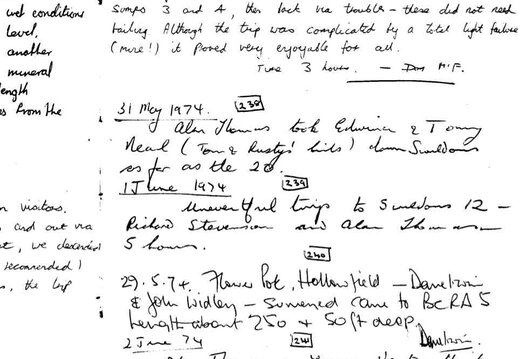 wet conditions
level,
another
mineral
length
es from the
n visitors.
and out via
t, we descended
recommended)
s, the trip
sumps 3 and 4, then back via troubles - these did not need
bailing. Although the trip was complicated by a total light failure
(mine!) it proved very enjoyable for all.
Time 3 hours. —
31 May 1974. 238
Alan Thomas took Edwina & Tommy
Neal ( Tom & Rusty's kids) down Swildons
as far as the 20.
1 June 1974 239
Uneventful trips to Swildons 12 -
Richard Stevenson and Alan Thomas -
5 hours.
240
29.5.74 Flower Pot, Hollowfield - Dave Irwin
& John Widley - surveyed cave to BCRA 5
Length about 250 + 50 ft deep.
2 June 74 241 Dave Irwin.